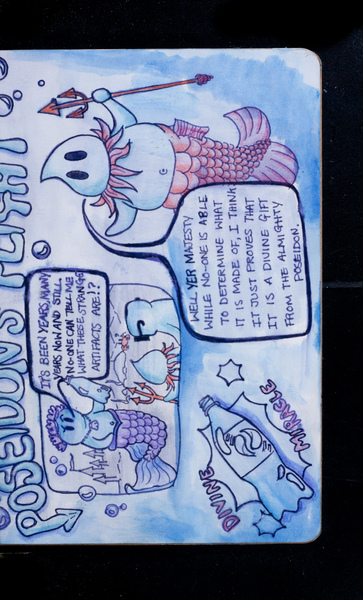 POSEIDON'S PLIGHT
IT'S BEEN YEARS, MANY
YEARS NOW AND STILL
NO-ONE CAN TELL ME
WHAT THESE STRANGE
ARTIFACTS ARE!?
WELL YER MAJESTY
WHILE NO-ONE IS ABLE
TO DETERMINE WHAT
IT IS MADE OF, I THINK
IT JUST PROVES THAT
IT IS A DIVINE GIFT
FROM THE ALMIGHTY
POSEIDON.
DIVINE
MIRACLE